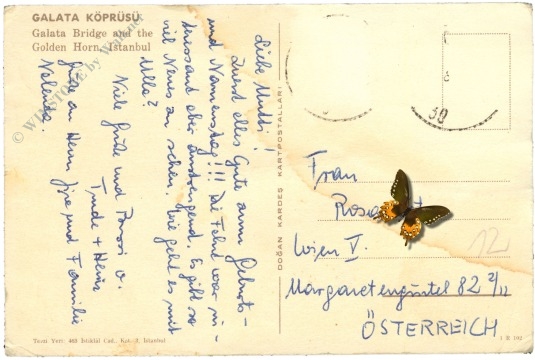 GALATA KÖPRÜSÜ
Galata Bridge and the
Golden Horn, Istanbul
© WINSTONE by
Liebe Mutti!
Zuerst alles Gute zum Geburts-
und Namenstag!!! Die Fahrt war in-
teressant aber anstrengend. Es gibt so
viel Neues zu sehen. Wie geht es mit
Ulla?
Viele Grüße und Bussi v.
Trude + Heinz
Grüße an Herrn und Familie
DOĞAN KARDEŞ KARTPOSTALLARI
30
Frau
Wien V.
Margaretengürtel 82 2/11
ÖSTERREICH
12
Yazı Yeri: 469 İstiklâl Cad. Kat. 3, İstanbul